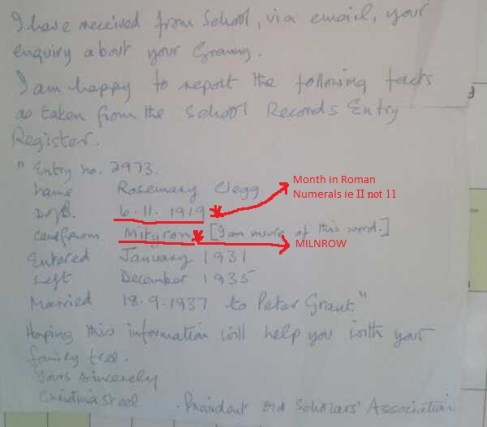 I have received from School, via email, your
enquiry about your Granny.
I am happy to report the following facts
as taken from the School Records Entry
Register.
"Entry no. 2973.
Name Rosemary Clegg
D.of.B. 6.11.1919 * Month in Roman
Numerals ie II not 11
Came from Milyron * [I am unsure of this word.] MILNROW
Entered January 1931
Left December 1935
Married 18.9.1937 to Peter Grant."
Hoping this information will help you with your
family tree.
Yours sincerely
President Old Scholars' Association